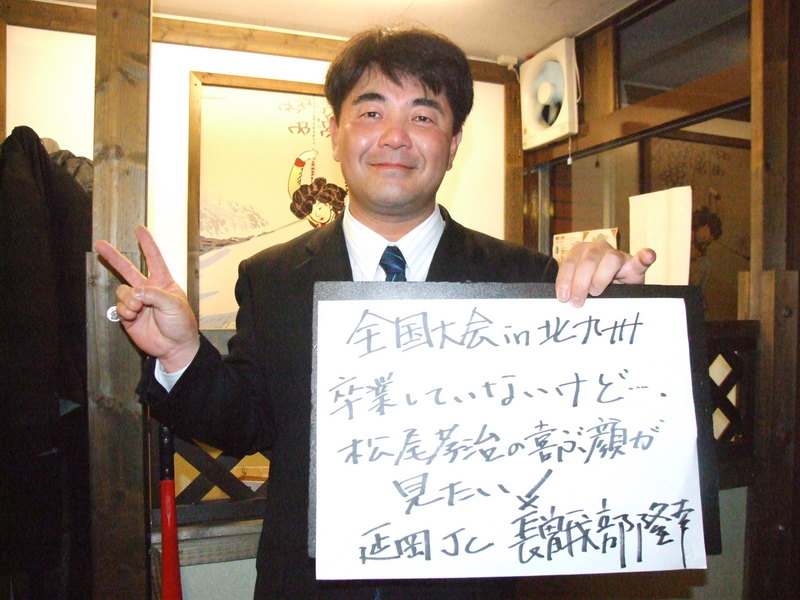 全国大会in北九州
卒業していないけど….
松尾孝治の喜ぶ顔が
見たい!
延岡JC 長曽我部隆幸